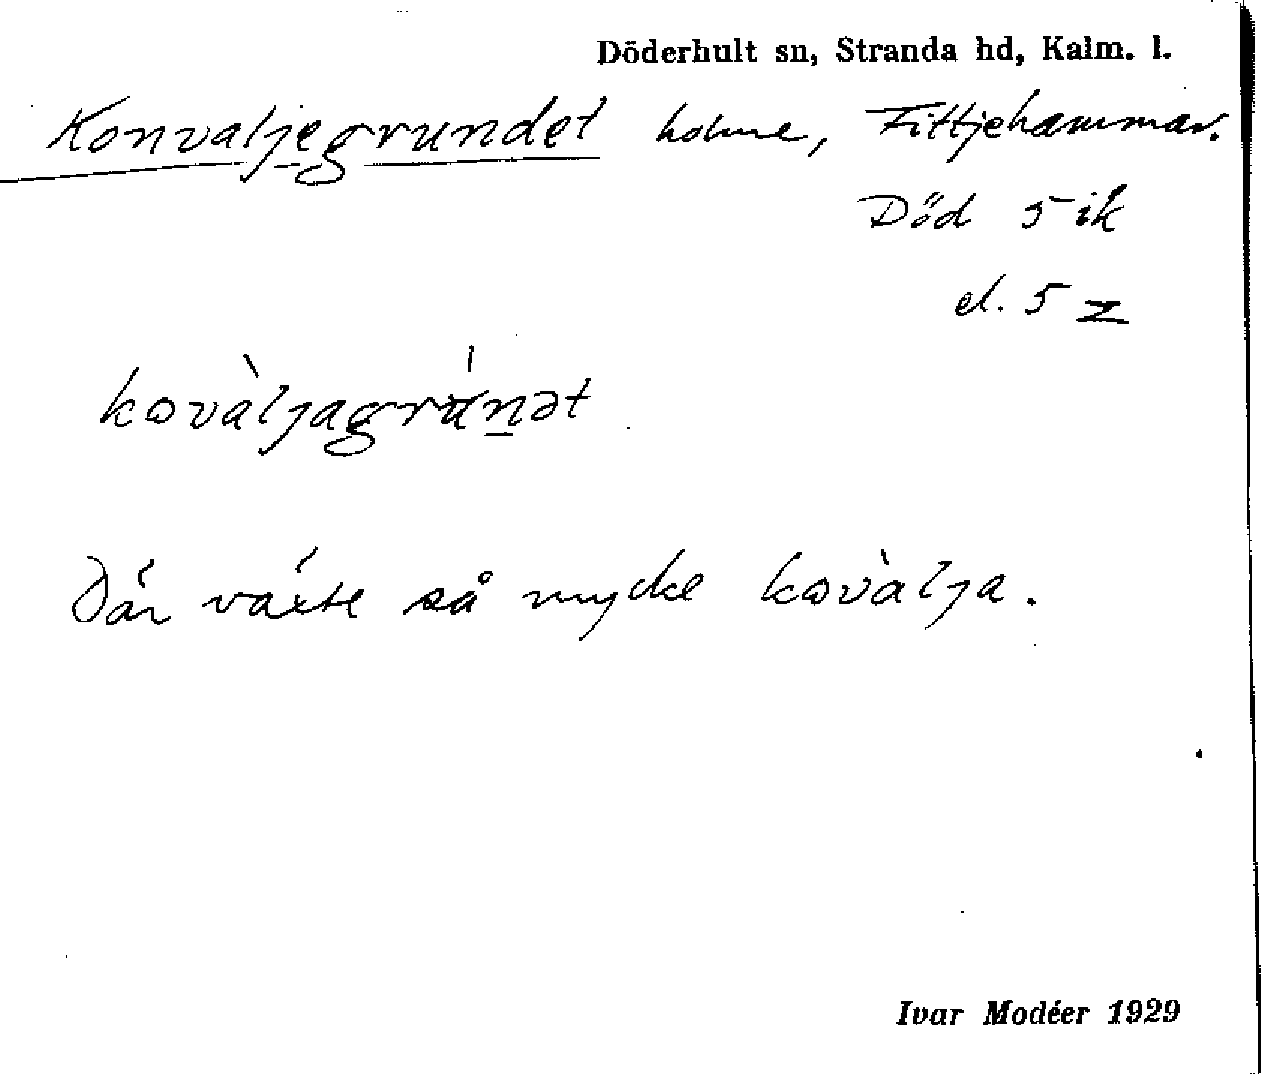 Döderhult sn, Stranda hd, Kalm. l.
Konvaljegrundet holme, Fittjehammar.
Död 5 ik
el. 5 z
kovàljagrúnət
Där växte så mycke kovàlja.
Ivar Modéer 1929